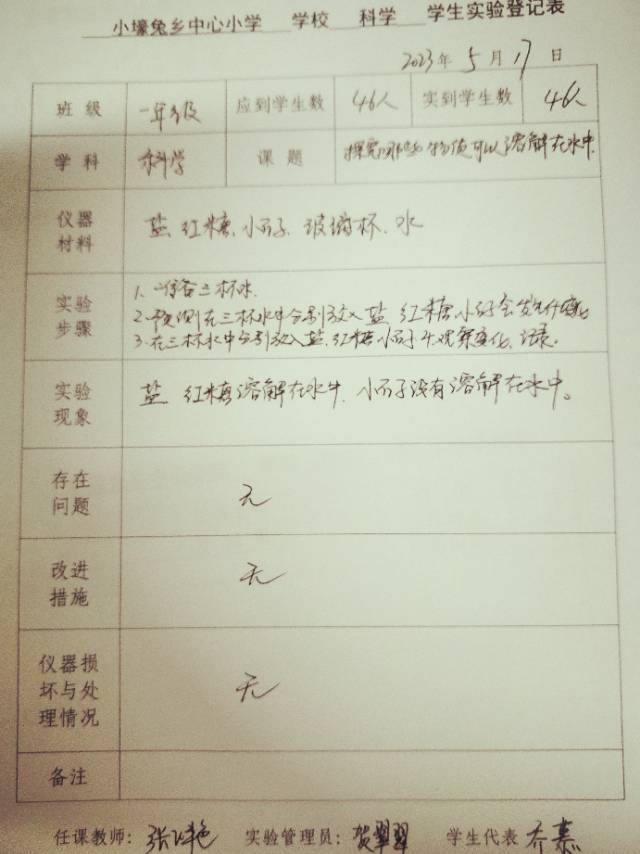 小壕兔乡中心小学 学校 科学 学生实验登记表
2023年5月17日
班级 一年级 应到学生数 46人 实到学生数 46人
学科 科学 课题 探究哪些物质可以溶解在水中
仪器材料 盐、红糖、小石子、玻璃杯、水
实验步骤 1、准备三杯水.
2.预测在三杯水中分别放入盐、红糖、小石子会发生什么变化
3.在三杯水中分别放入盐、红糖、小石子并观察变化、记录。
实验现象 盐、红糖溶解在水中、小石子没有溶解在水中。
存在问题 无
改进措施 无
仪器损坏与处理情况 无
备注
任课教师: 实验管理员:贺翠翠 学生代表 乔嘉